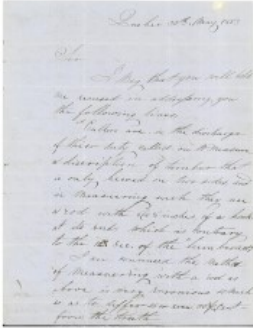 Quebec 20th May, 18
Sir
I beg that you will hold
me excused in addressing you
the following lines
Cullers are in the discharge
of their duty called on to measure
a description of timber that
is only hewn on two sides and
in measuring such they use
a rod with inches of a hook
it do ends which is contrary
to the Sec. of the
I am convinced the method
of measuring with a rod as
above is very erroneous which
is as to
from the truth